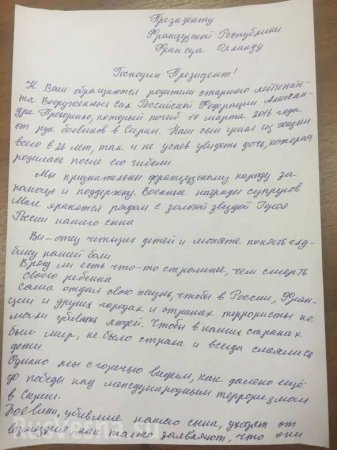 Президенту
Французской Республики
Франсуа Олланду
Господин Президент!
К Вам обращаются родители старшего лейтенан-
та Вооруженных сил Российской Федерации Алексан-
дра Прохоренко, который погиб 17 марта 2016 года
от рук боевиков в Сирии. Наш сын ушел из жизни
всего в 25 лет, так и не успев увидеть дочь, которая
родилась после его гибели.
Мы признательны французскому народу за
помощь и поддержку. Военные награды супругов
Маге хранятся рядом с золотой звездой Героя
России нашего сына
Вы - отец четверых детей и можете понять глу-
бину нашей боли
Вряд ли есть что-то страшнее, чем смерть
своего ребенка
Саша отдал свою жизнь, чтобы в России, Фран-
ции и других городах и странах террористы не
могли убивать людей. Чтобы в наших странах
был мир, не было страха и всегда смеялись
дети.
Однако мы с горечью видим, как далеко ещё
до победы над международным терроризмом
в Сирии.
Боевики, убившие нашего сына, уходят от
возмездия, как только заявляют, что они